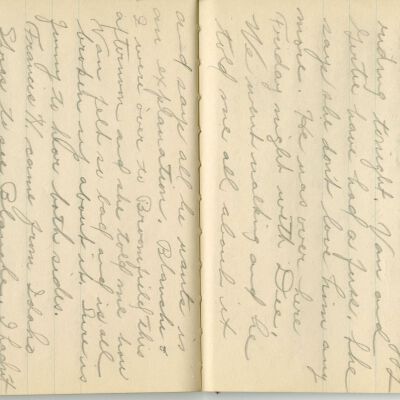 riding tonight. Van and
Gertie have had a fuss. She
says she dont love him any
more. He was over here
Friday night with Dee,
We went walking and he
told me all about it
and says all he wants is
an explanation. Blanche &
I were over to Broomfield this
afternoon and she told me how
Van felt so bad and is all
broken up about it. Sure is
funny to hear both sides.
Francis V. came from Idaho
to see Blanche. I hadn't